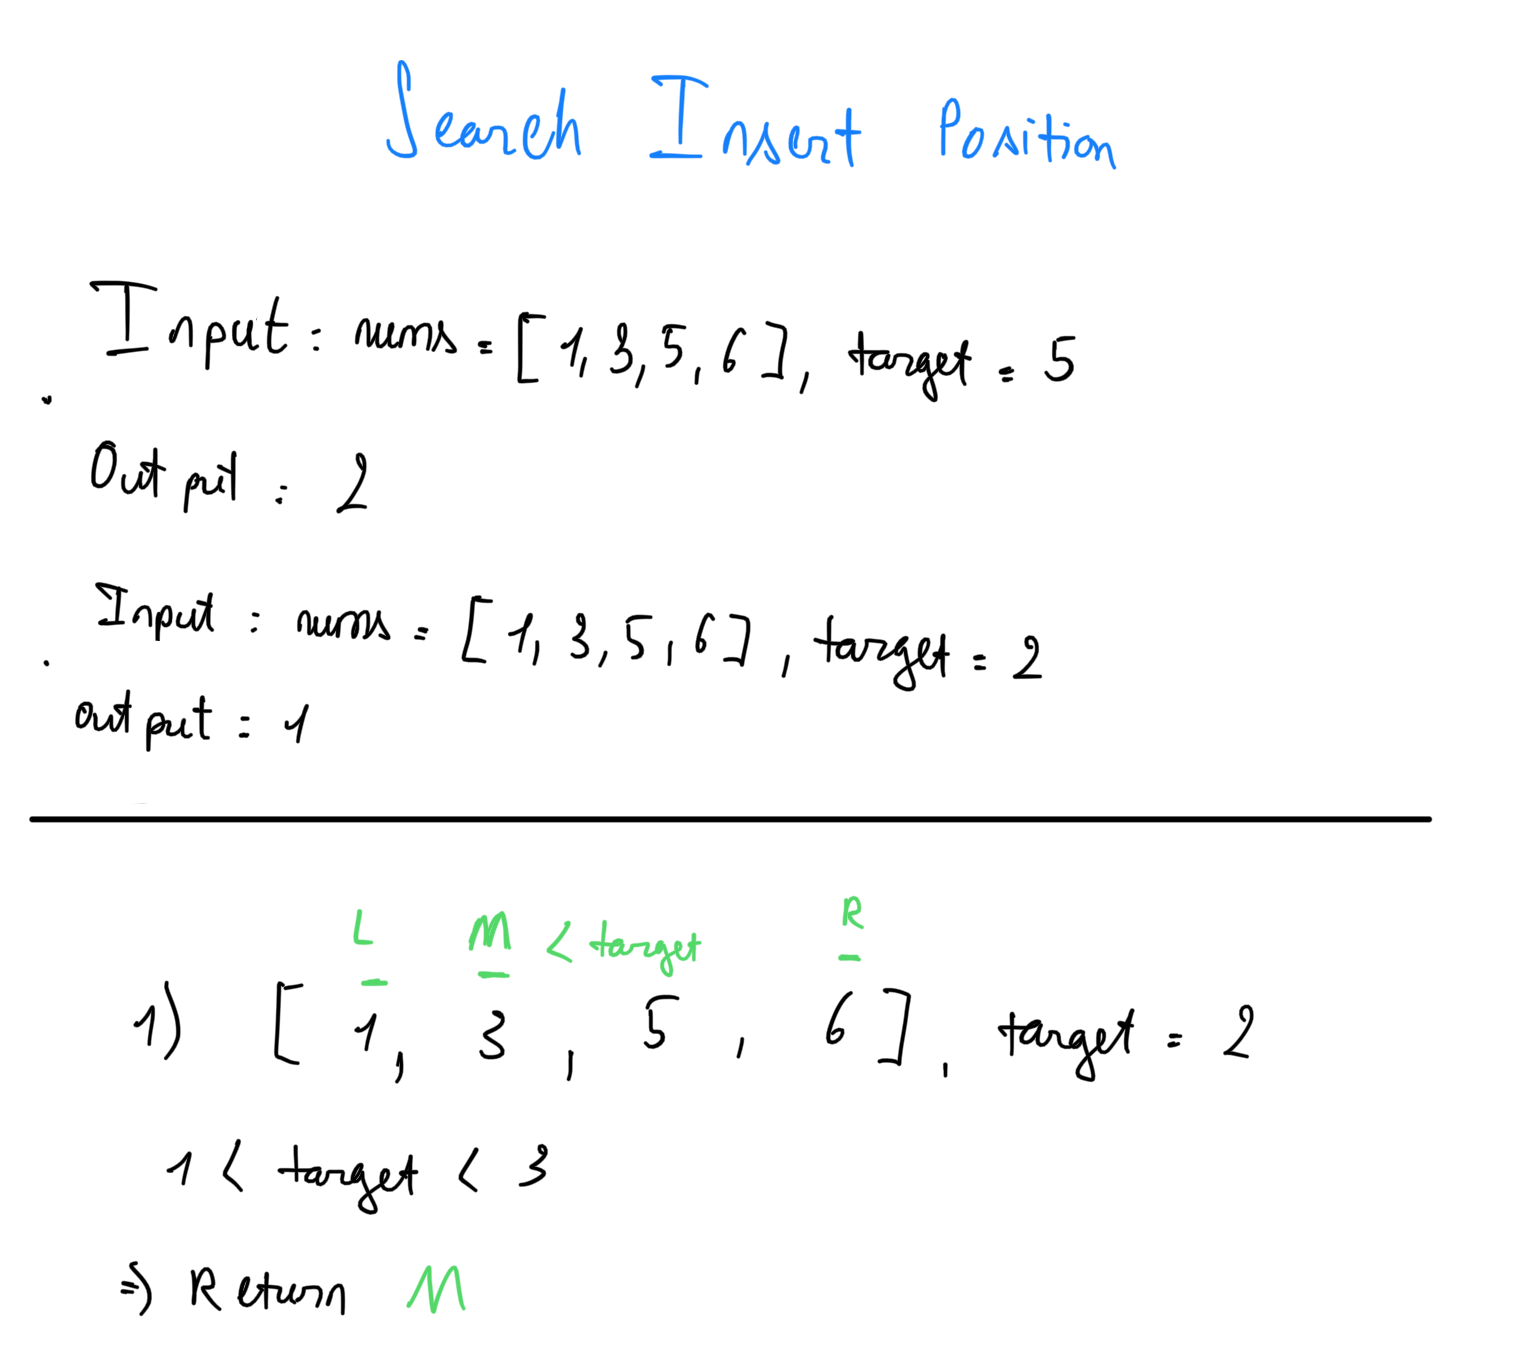 Search Insert Position
Input : nums = [1, 3, 5, 6], target = 5
Output : 2
Input : nums = [1, 3, 5, 6], target = 2
output = 1
L M < target R
1) [1, 3, 5, 6], target = 2
1 < target < 3
⇒ Return M